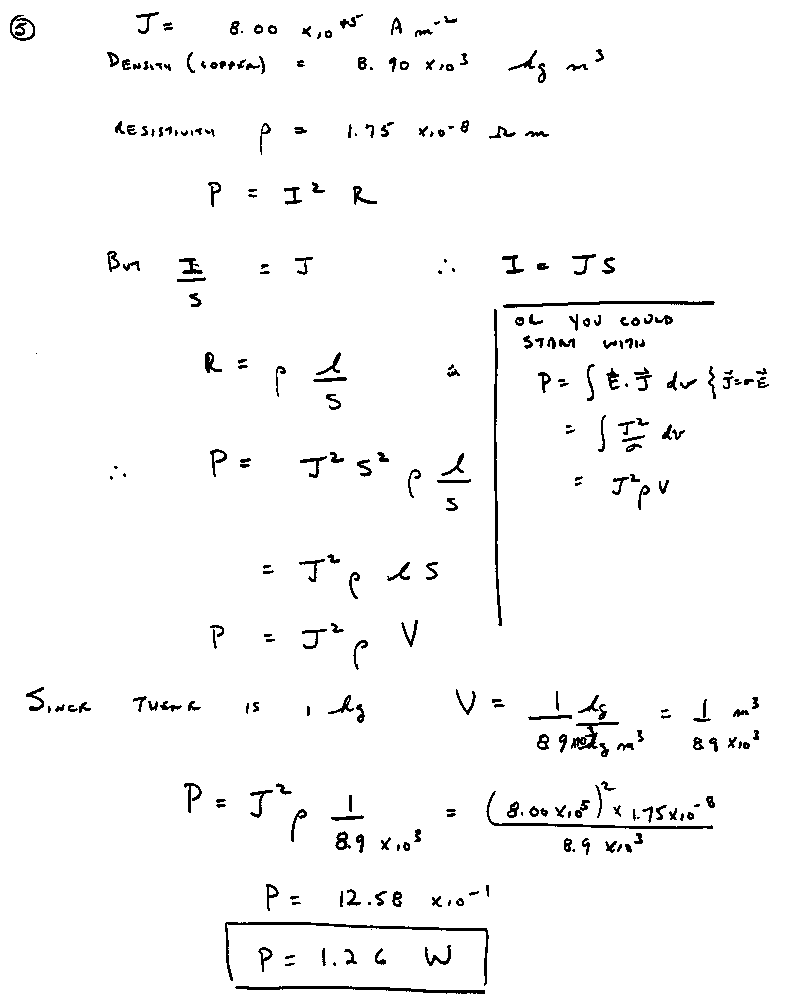 ⑤ J = 8.00 ×10^+5 A m^-2
DENSITY (COPPER) = 8.90 ×10^3 kg m^3
RESISTIVITY ρ = 1.75 ×10^-8 Ω m
P = I^2 R
BUT I/S = J ∴ I = JS
R = ρ l/S
∴ P = J^2 S^2 ρ l/S
= J^2 ρ l S
P = J^2 ρ V
OR YOU COULD
START WITH
P = ∫ E⃗ · J⃗ dv { J⃗ = σE⃗
= ∫ J^2/σ dv
= J^2 ρ V
SINCE THERE IS 1 kg V = 1 kg / 8.9 ×10^3 kg m^3 = 1 / 8.9 ×10^3 m^3
P = J^2 ρ 1 / 8.9 ×10^3 = (8.00 ×10^5)^2 × 1.75 ×10^-8 / 8.9 ×10^3
P = 12.58 ×10^-1
P = 1.26 W